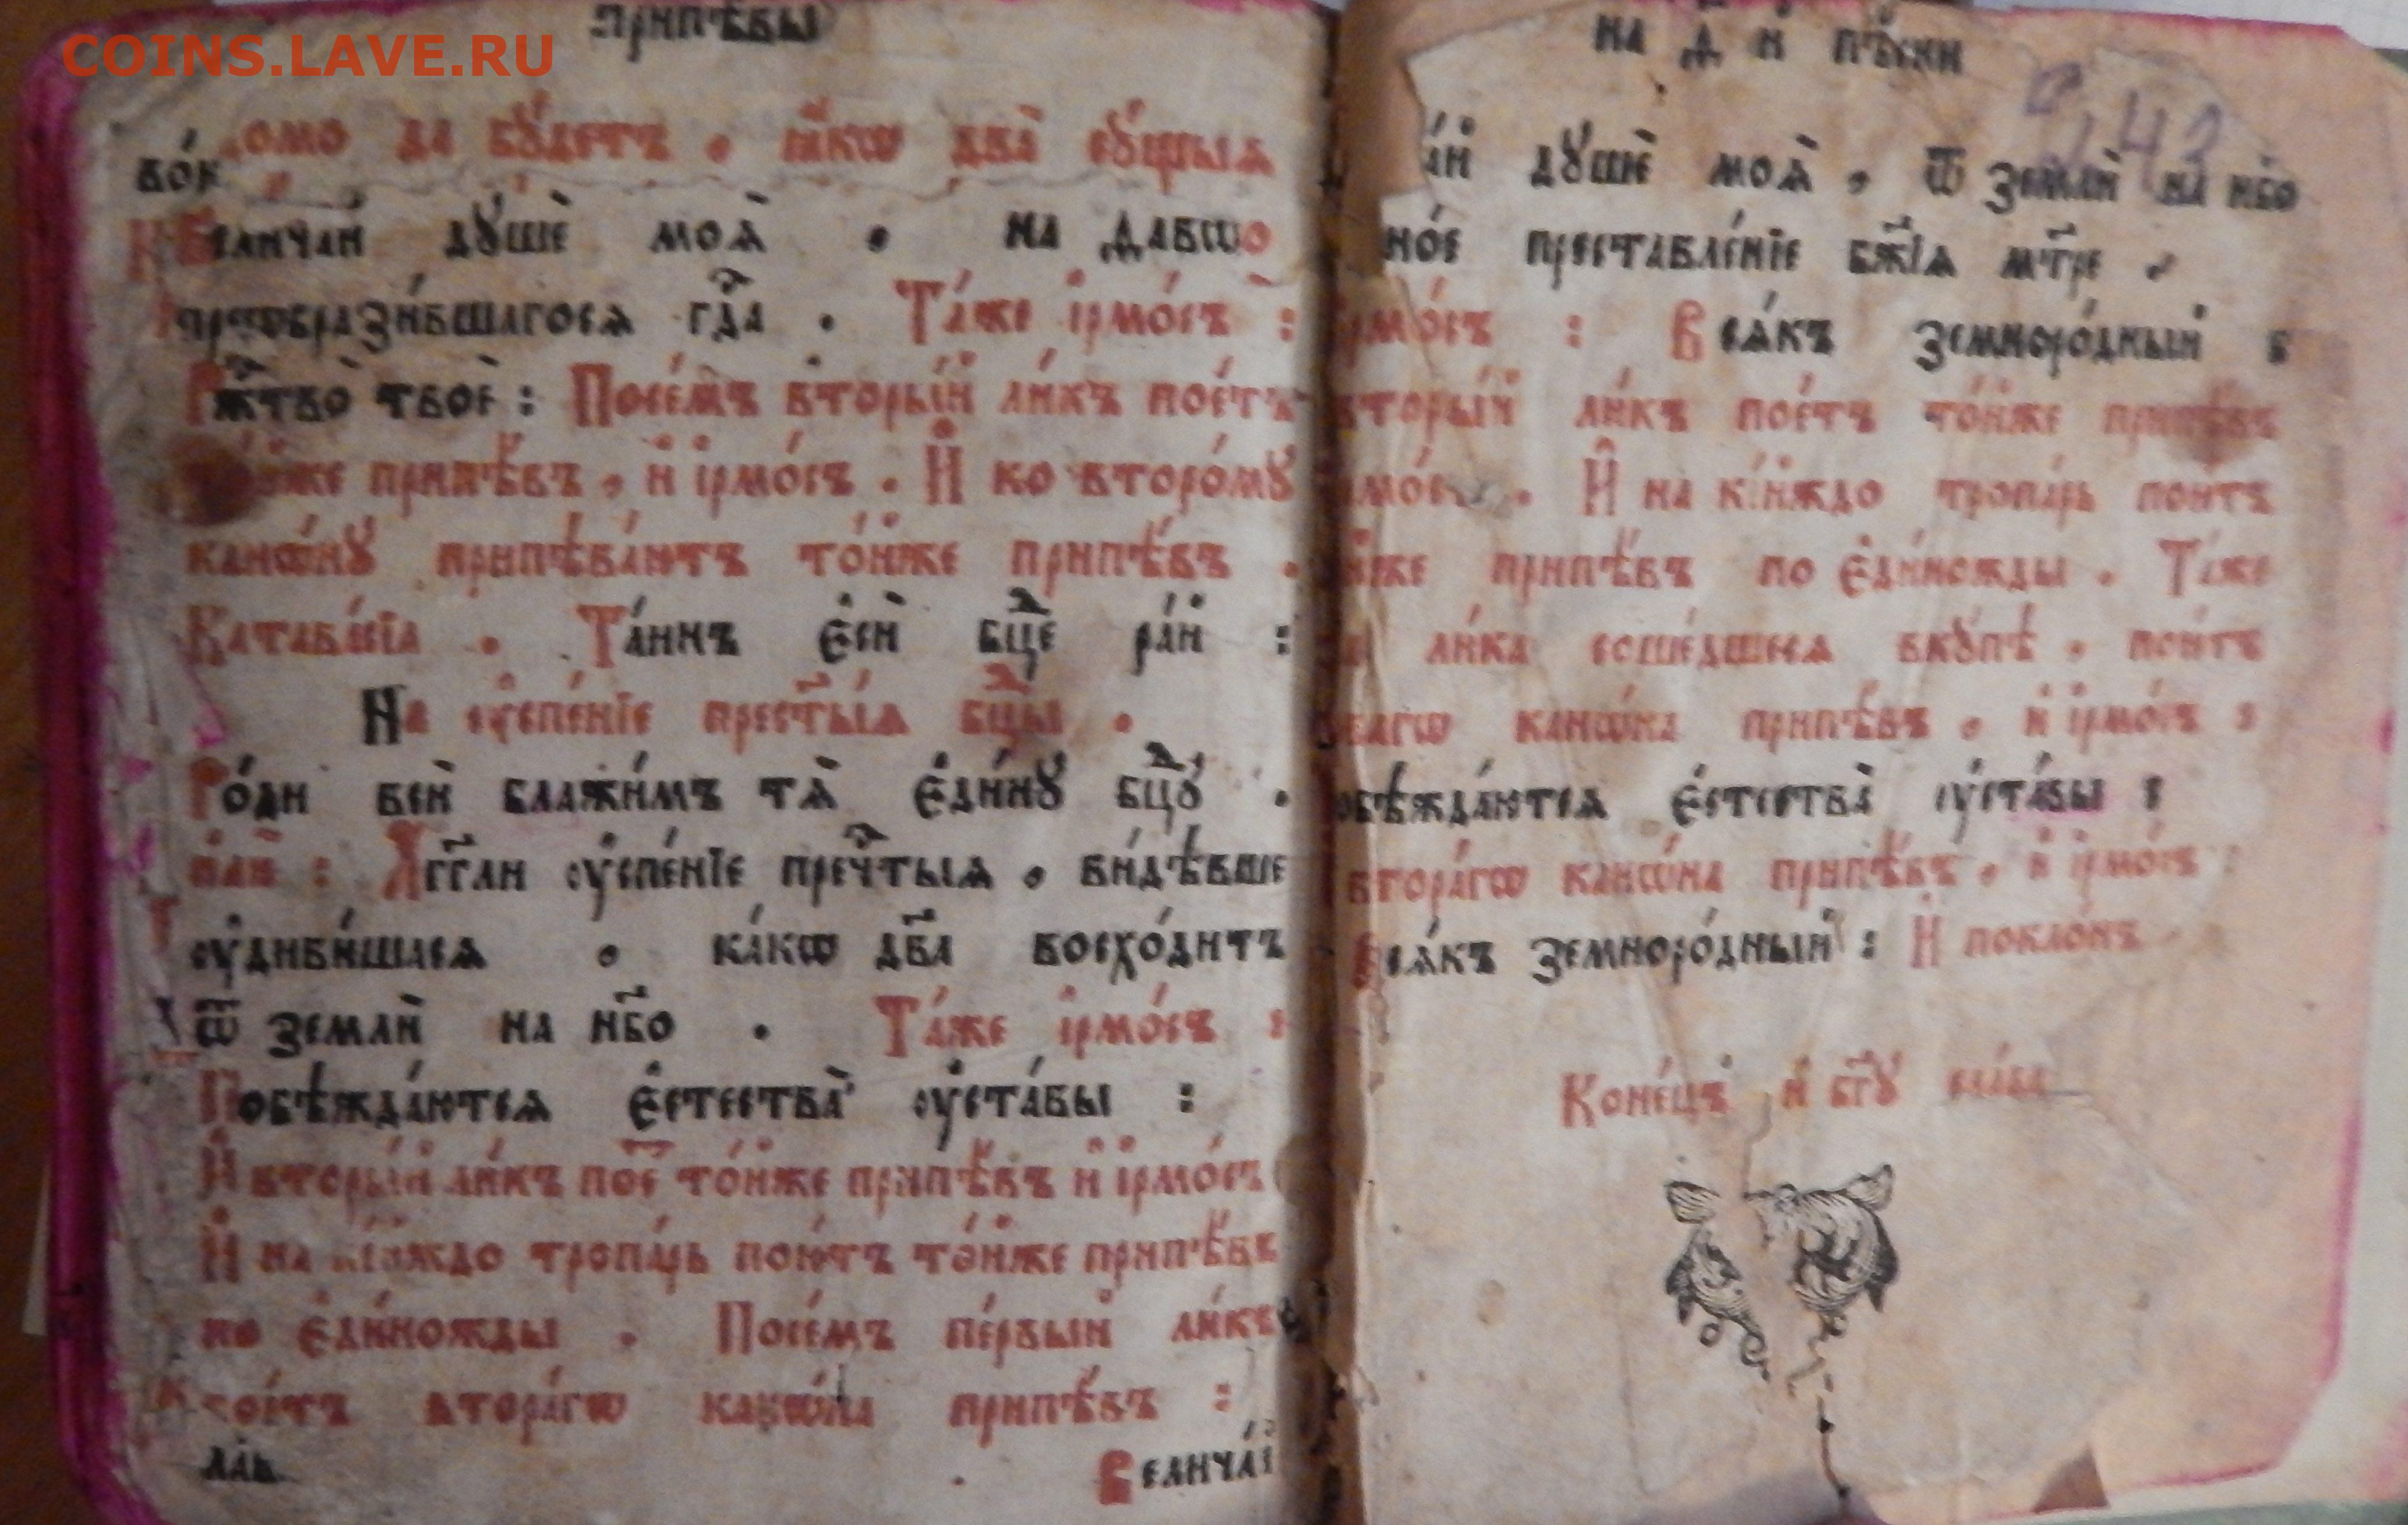 COINS.LAVE.RU
припѣ́вы
да бꙋ́детъ , ꙗ҆́кѡ два̀ сꙋ́щыѧ
Велича́й дꙋшѐ моѧ̀ , на
преѡбрази́вшагосѧ гдⷭ҇а . Та́же і҆рмо́съ :
Ржⷭ҇тво̀ твоѐ : Посе́мъ вторы́й ли́къ пое́тъ
то́йже припѣ́въ , и҆ і҆рмо́съ . И҆ ко второ́мꙋ
канѡ́нꙋ припѣва́ютъ то́йже припѣ́въ .
Катава́сїа . Та́инъ є҆сѝ бц҇е ра́й :
На ᲂу҆спе́нїе прест҃ы́ѧ бц҇ы .
Ро́ди всѝ блажи́мъ тѧ̀ є҆ди́нꙋ бц҇ꙋ .
и҆лѝ : А҆́гг҃ли ᲂу҆спе́нїе пречⷭ҇тыѧ , ви́дѣвше
ᲂу҆диви́шасѧ , ка́кѡ дв҃а восхо́дитъ
ѿ землѝ на нб҃о . Та́же і҆рмо́съ :
Побѣжда́ютсѧ є҆стества̀ ᲂу҆ста́вы :
И҆ вторы́й ли́къ пое́ⷮ то́йже припѣ́въ и҆ і҆рмо́съ
И҆ на кі́йждо тропа́рь пою́тъ то́йже припѣ́въ
по є҆ди́ножды . Посе́мъ пе́рвый ли́къ
пое́тъ втора́гѡ канѡ́на припѣ́въ :
Велича́й
на д҃ и҆ пѣ́сни
дꙋшѐ моѧ̀ , ѿ землѝ на нб҃о
ное преставле́нїе бж҃їѧ мт҃ре ,
і҆рмо́съ : Всѧ́къ земноро́дный :
вторы́й ли́къ пое́тъ то́йже припѣ́въ
і҆рмо́съ . И҆ на кі́йждо тропа́рь пою́тъ
то́йже припѣ́въ по є҆ди́ножды . Та́же
ли́ка соше́дшесѧ вкꙋ́пѣ , пою́тъ
канѡ́на припѣ́въ , и҆ і҆рмо́съ :
Побѣжда́ютсѧ є҆стества̀ ᲂу҆ста́вы :
втора́гѡ канѡ́на припѣ́въ , и҆ і҆рмо́съ :
Всѧ́къ земноро́дный : И҆ покло́нъ
Коне́цъ и҆ бг҃ꙋ сла́ва